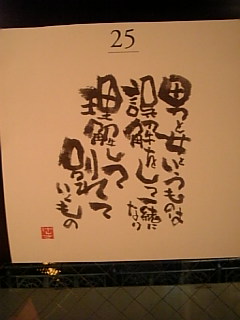 25
男と女というものは
誤解をして一緒になり
理解をして
別れて
いくもの